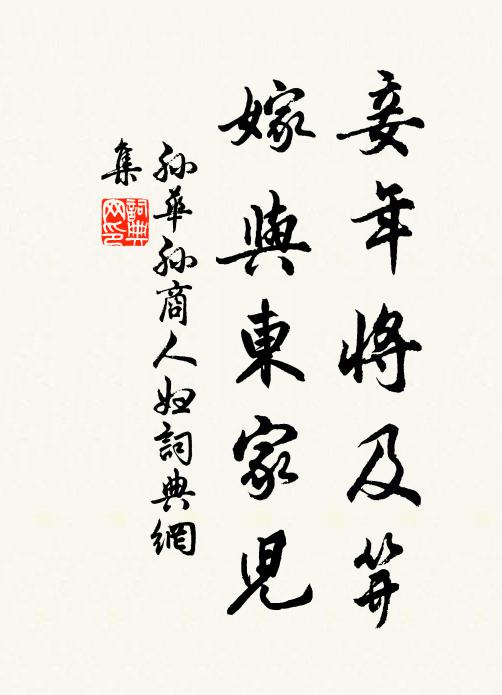 妾年將及笄
嫁與東家兒
孫華孫商人婦詞典網
集
詞典
网印